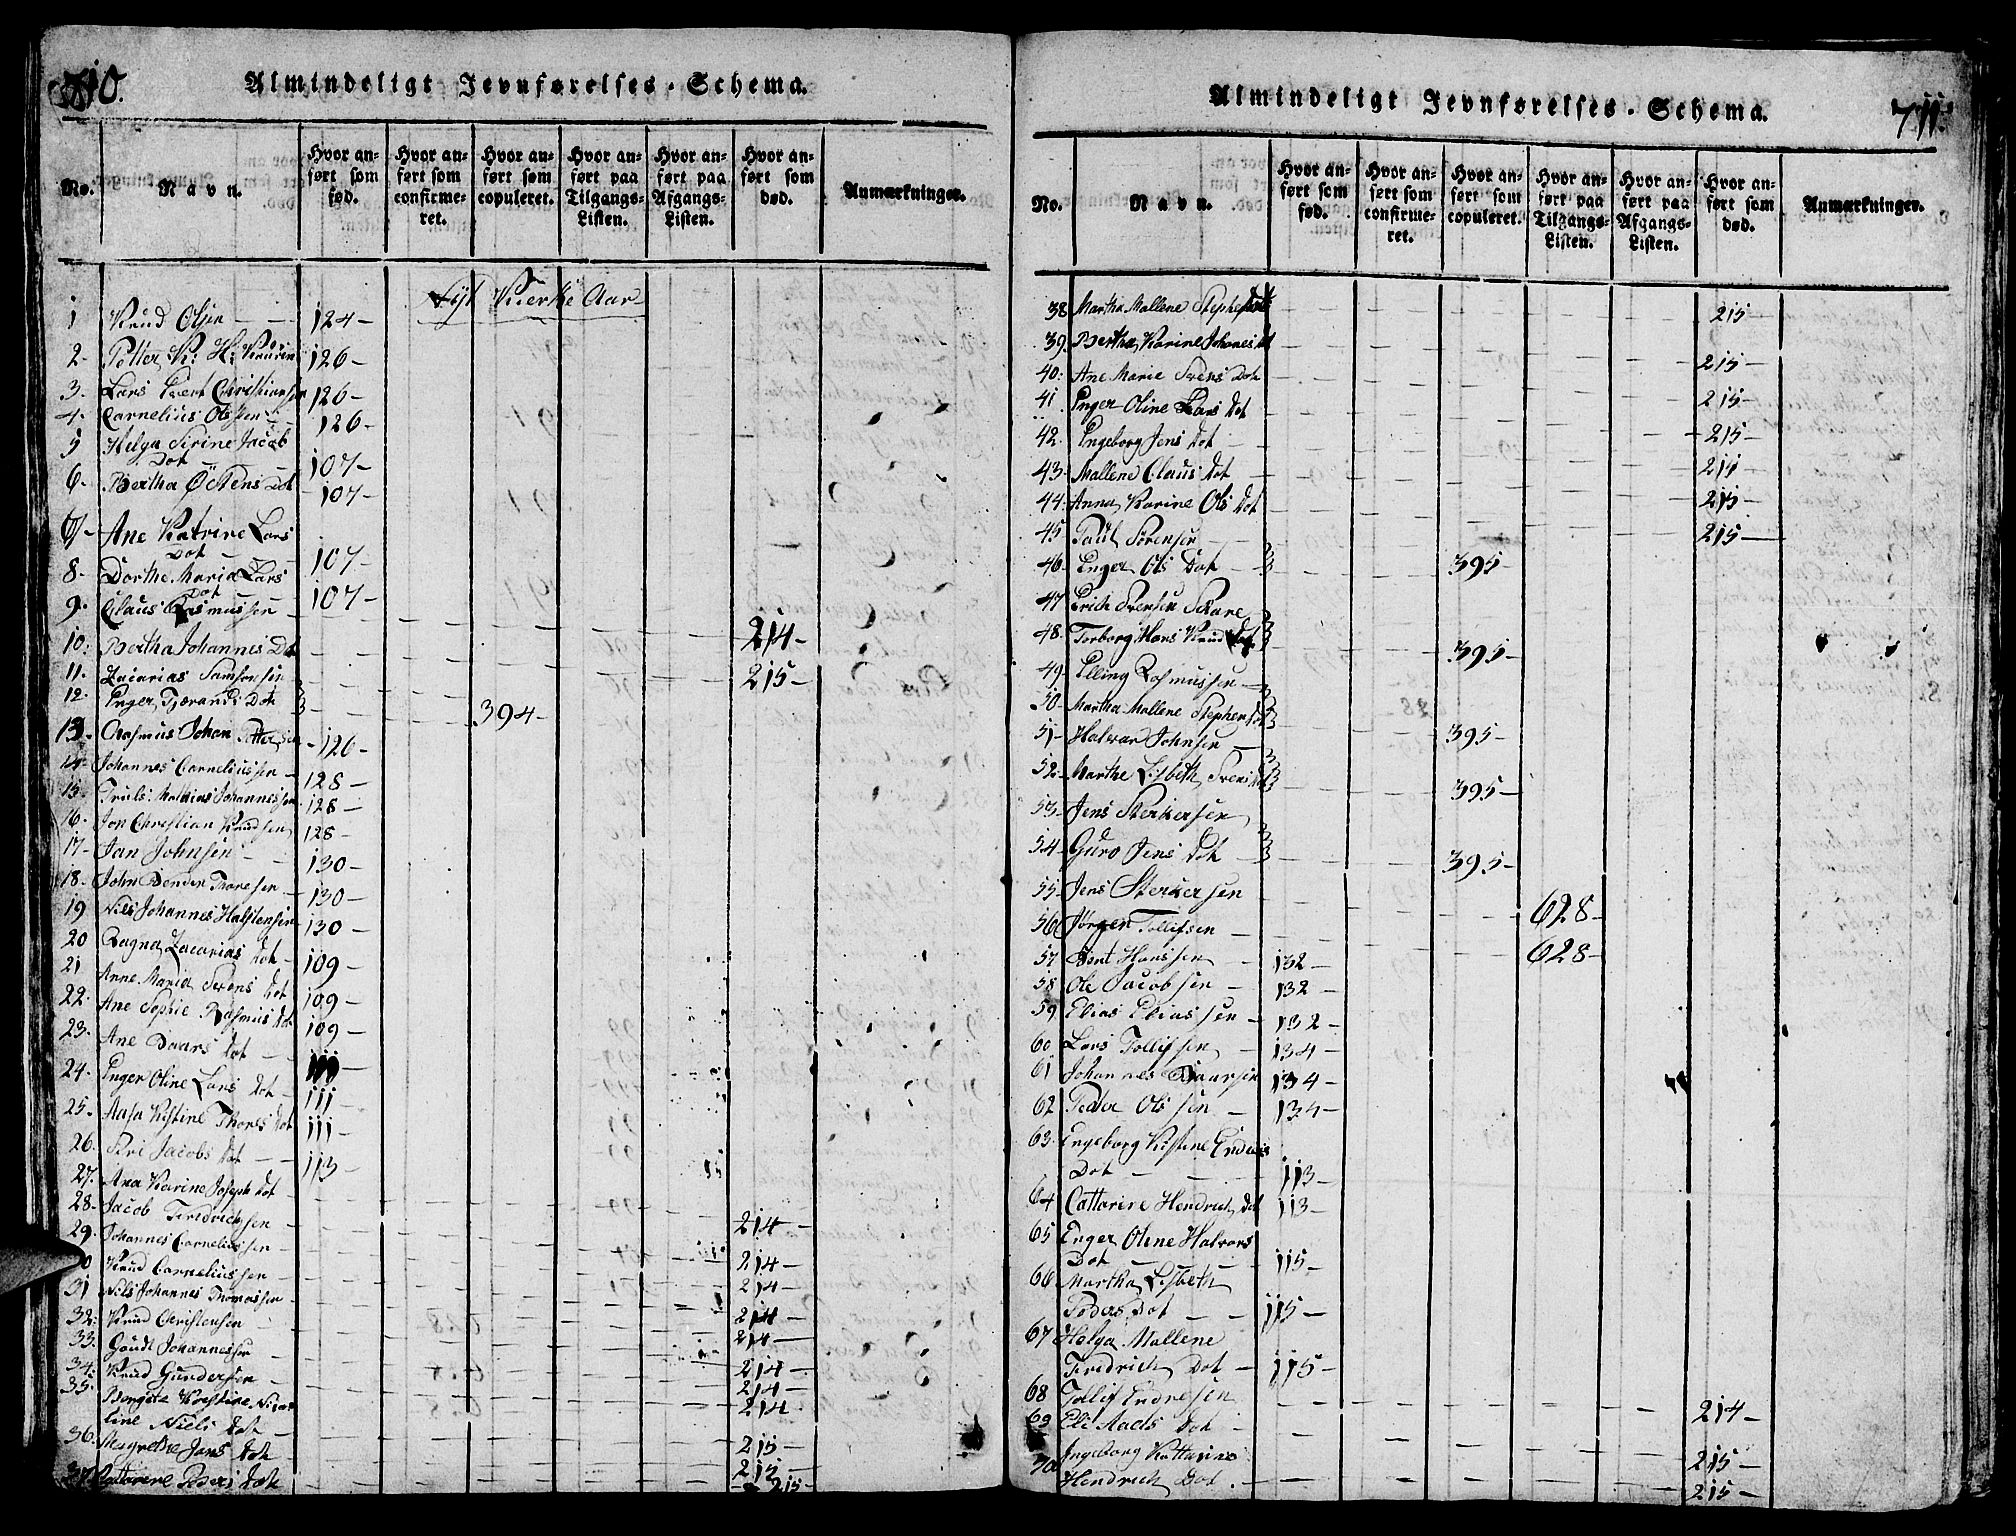 710.
Almindeligt Jevnførelses-Schema.
No. Navn. Hvor anført som fød. Hvor anført som confirmeret. Hvor anført som copuleret. Hvor anført paa Tilgangs-Listen. Hvor anført paa Afgangs-Listen. Hvor anført som død. Anmærkninger.
Kierke Aar
1 Knud Olsen 124
2 Petter K: H: 126
3 Lars Christiansen 126
4 Cornelius Olssen 126
5 Helga Sirine Jacob
Dot 107
6 Bertha Östens Dot 107
Ane Katrine Lars
Dot 107
8 Dorthe Maria Lars
Dot 107
9 Claus Rasmussen 214
10 Bertha Johannes Dot 215
11 Zacarias Samsonsen
12 Enger Tjørands Dot 394
13 Rasmus Johan Pettersen 126
14 Johannes Corneliussen 128
15 Truls Mathias Johannessen 128
16 Jon Christian Knudsen 128
17 Jan Johnsen 130
18 John Bender Thoresen 130
19 Nils Johannes Halstensen 130
20 Ragna Zacarias Dot 109
21 Anne Maria Svens Dot 109
22 Ane Sophie Rasmus Dot 109
23 Ane Daars Dot 111
24 Enger Oline Lars Dot 111
25 Aasa Kistine Thores Dot 111
26 Siri Jacobs Dot 113
27 Ana Karine Joseph Dot
28 Jacob Fredrichsen 214
29 Johannes Corneliussen 214
30 Knud Corneliussen 214
31 Nils Johannes Thomassen 214
32 Knud Christensen 214
33 Johannessen 214
34 Knud Gundersen 214
35 Kristine
line Niels Dot 215
36 Magrethe Jans Dot 215
37 Cattarine Peders Dot 215
Almindeligt Jevnførelses-Schema.
711.
No. Navn. Hvor anført som fød. Hvor anført som confirmeret. Hvor anført som copuleret. Hvor anført paa Tilgangs-Listen. Hvor anført paa Afgangs-Listen. Hvor anført som død. Anmærkninger.
38 Martha Mallene Stephens Dot 215
39 Bertha Karine Johanes Dot 215
40 Ane Marie Svens Dot 215
41 Enger Oline Lars Dot 215
42 Engeborg Jens Dot 215
43 Mallene Claus Dot 215
44 Anna Karine Ols Dot 215
45 Paul Sørensen
46 Enger Ols Dot 395
47 Erich Svensen Skare
48 Torborg Hans Knud Dot 395
49 Elling Rasmussen
50 Martha Mallene Stephens Dot 395
51 Halvar Johnsen
52 Marthe Lisbeth Svens Dot 395
53 Jens Sterkersen
54 Guro Jens Dot 395
55 Jens Sterkersen 628
56 Jörgen Tollifsen 628
57 Hanssen 132
58 Ole Jacobsen 132
59 Elias Eliassen 132
60 Lars Tollifsen 134
61 Johannes Daarsen 134
62 Peder Olssen 134
63 Engeborg Kistine Endres
Dot 113
64 Cattarine Hendrich Dot 113
65 Enger Oline Halvors
Dot 115
66 Martha Lisbeth
Peders Dot 115
67 Helga Mallene
Fredrich Dot 115
68 Tollif Endresen 214
69 Eli Aads Dot 215
70 Ingeborg Kattarine
Hendrich Dot 215